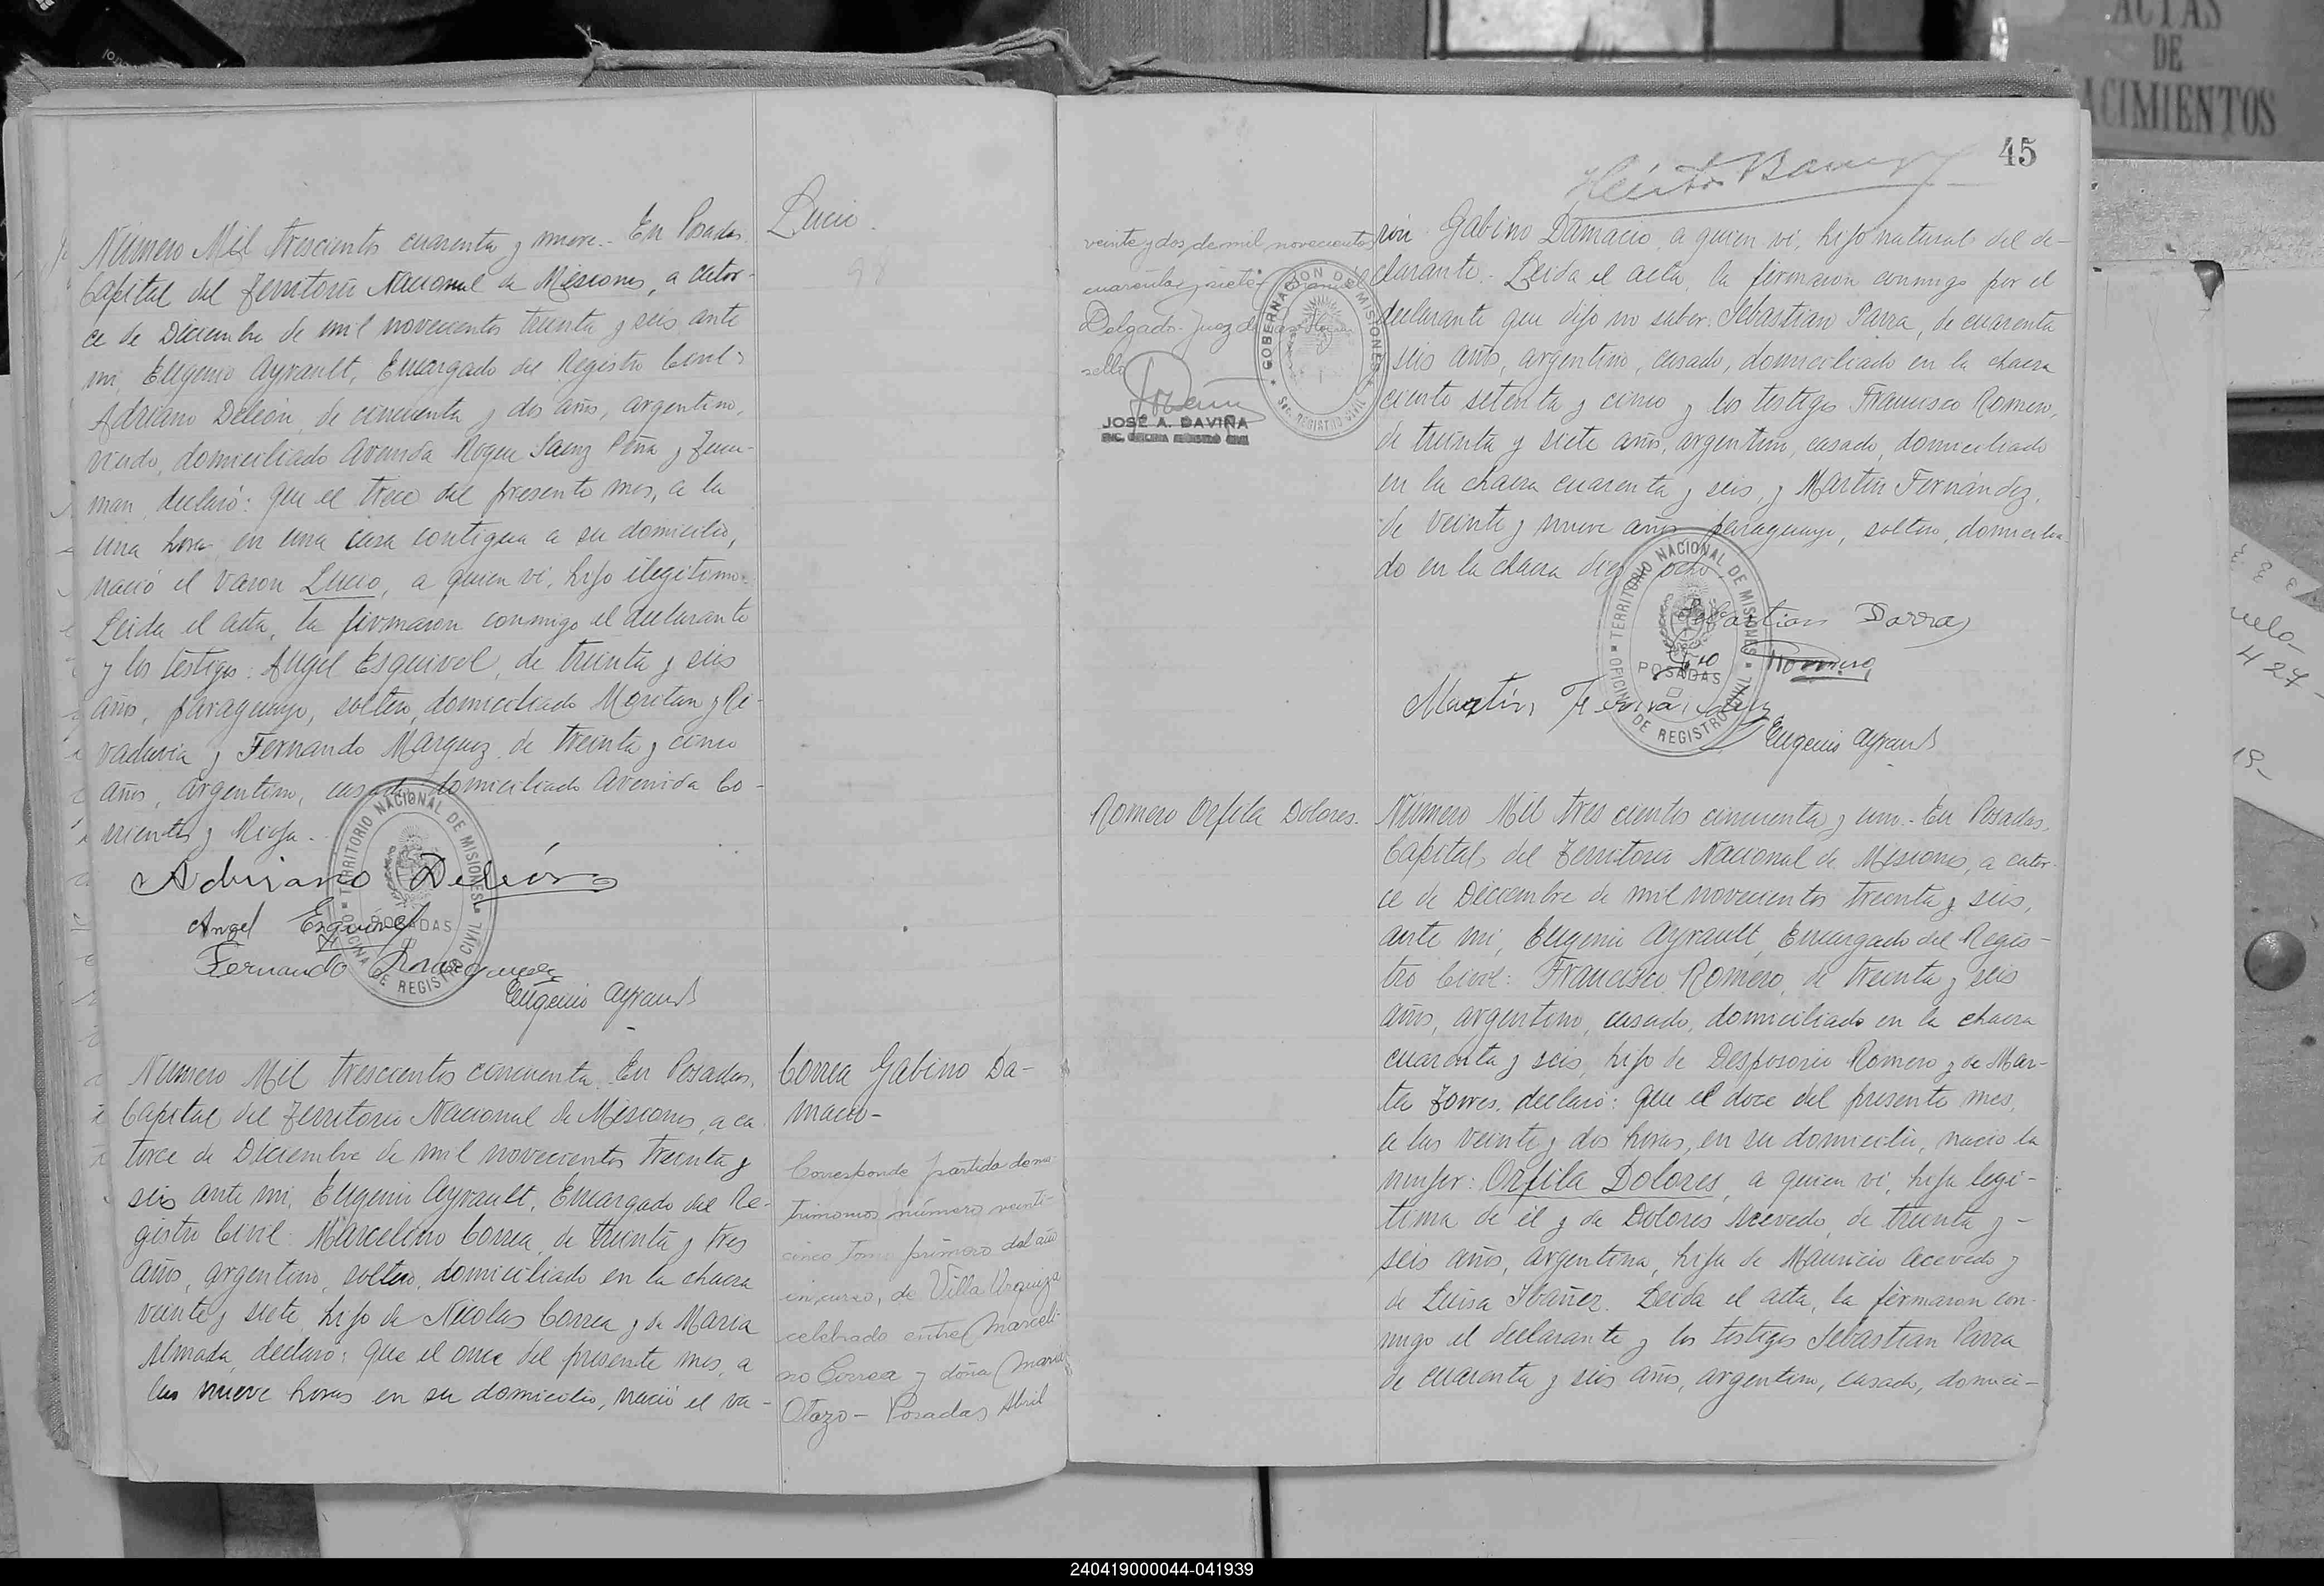 ACTAS
DE
NACIMIENTOS
Lucio.
98
Número Mil trescientos cuarenta y nueve.- En Posadas
Capital del Territorio Nacional de Misiones, a cator-
ce de Diciembre de mil novecientos treinta y seis ante
mi, Eugenio Ayrault, Encargado del Registro Civil:
Adriano Deleón, de cincuenta y dos años, argentino,
viudo, domiciliado Avenida Roque Saenz Peña y Tucu-
man, declaró: que el trece del presente mes, a la
una hora en una casa contigua a su domicilio,
nació el varon Lucio, a quien vi, hijo ilegitimo.
Leida el acta, la firmaron conmigo el declarante
y los testigos: Angel Esquivel, de treinta y seis
años, paraguayo, soltero, domiciliado Moritan y Ri-
vadavia y Fernando Marquez, de treinta y cinco
años, argentino, casado, domiciliado Avenida Co-
rrientes y Rioja.-
Adriano Deleón
Angel Esquivel
Fernando Marquez
Eugenio Ayrault
TERRITORIO NACIONAL DE MISIONES
POSADAS
OFICINA DE REGISTRO CIVIL
Correa Gabino Da-
macio-
Número Mil trescientos cincuenta. En Posadas,
Capital del Territorio Nacional de Misiones, a ca
torce de Diciembre de mil novecientos treinta y
seis ante mi, Eugenio Ayrault, Encargado del Re-
gistro Civil: Marcelino Correa, de treinta y tres
años, argentino, soltero, domiciliado en la chacra
veinte y siete, hijo de Nicolas Correa y de Maria
Almada, declaró: que el once del presente mes, a
las nueve horas en su domicilio, nació el va-
Corresponde partida de ma-
trimonios número veinti-
cinco, tomo primero del año
en curso, de Villa Urquiza
celebrado entre Marceli-
no Correa y doña Maria
Otazo - Posadas Abril
45
veinte y dos de mil novecientos
cuarenta y siete.- Manuel
Delgado- Juez de Paz. Hay un
sello
JOSÉ A. DAVIÑA
ENC. OFICINA REGISTRO CIVIL
GOBERNACIÓN DE MISIONES
Sec. REGISTRO CIVIL
rón Gabino Damacio, a quien vi, hijo natural del de-
clarante.- Leida el acta, la firmaron conmigo por el
declarante que dijo no saber: Sebastian Parra, de cuarenta
seis años, argentino, casado, domiciliado en la chacra
ciento setenta y cinco y los testigos Francisco Romero,
de treinta y siete años, argentino, casado, domiciliado
en la chacra cuarenta y seis, y Martin Fernández,
de veinte y nueve años, paraguayo, soltero, domicilia
do en la chacra diez y ocho.-
Sebastian Parra
Fco Romero
Martin Fernández
Eugenio Ayrault
TERRITORIO NACIONAL DE MISIONES
POSADAS
OFICINA DE REGISTRO CIVIL
Romero Orfila Dolores.
Número Mil tres cientos cincuenta y uno.- En Posadas,
Capital del Territorio Nacional de Misiones, a cator-
ce de Diciembre de mil novecientos treinta y seis,
ante mi, Eugenio Ayrault, Encargado del Regis-
tro Civil: Francisco Romero, de treinta y seis
años, argentino, casado, domiciliado en la chacra
cuarenta y seis, hijo de Desposorio Romero y de Mar-
ta Torres, declaró: que el doce del presente mes,
a las veinte y dos horas, en su domicilio, nacio la
mujer: Orfila Dolores, a quien vi, hija legi-
tima de el y de Dolores Acevedo, de treinta y -
seis años, argentina, hija de Mauricio Acevedo y
de Luisa Ibáñez. Leida el acta, la firmaron con-
migo el declarante y los testigos Sebastian Parra
de cuarenta y seis años, argentino, casado, domici-
427
19-
240419000044-041939